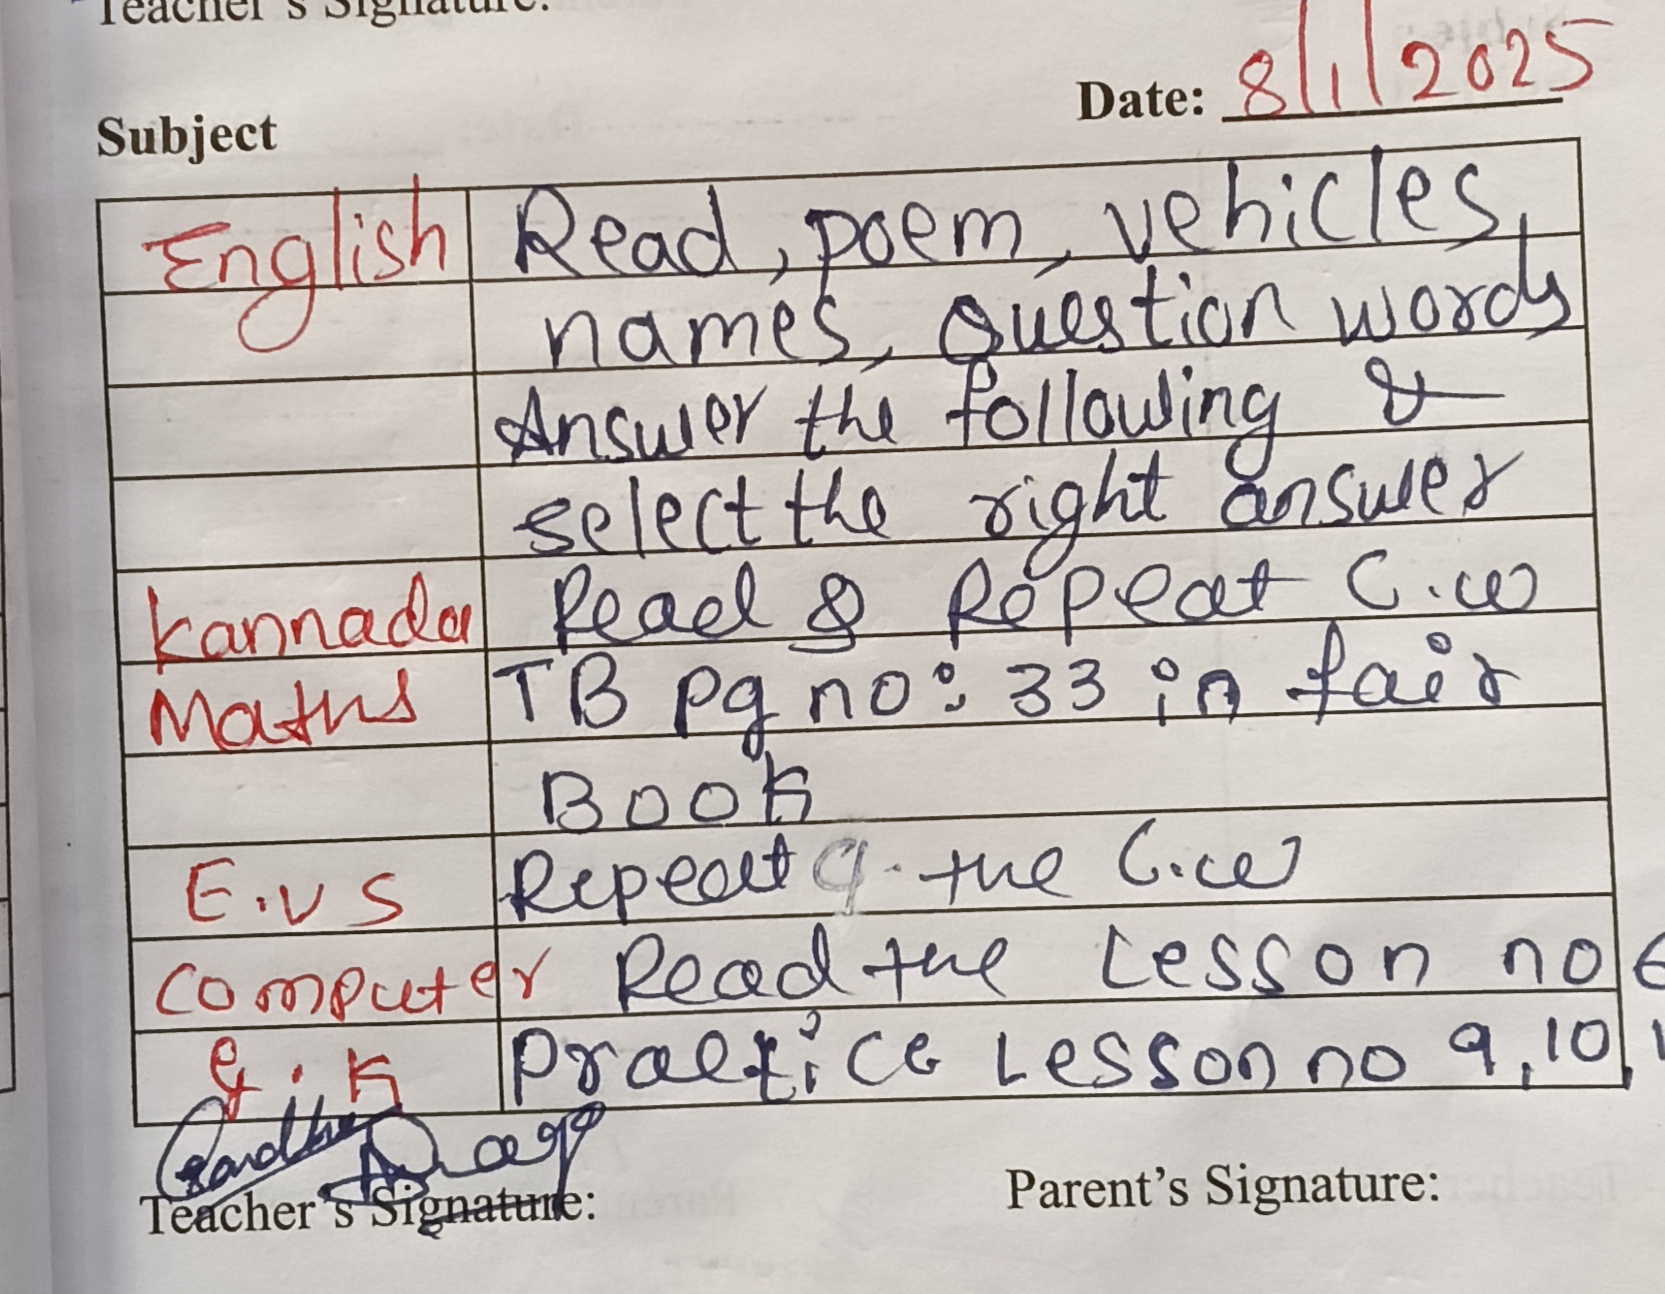 Teacher's Signature:
Date: 8/1/2025
Subject
English Read, poem, vehicles,
names, Question words
Answer the following &
select the right answer
Kannada Read & Repeat C.w
Maths TB pg no: 33 in fair
Book
E.V S Repeat the C.w
Computer Read the Lesson no 6
G.K Practice Lesson no 9, 10, 1
Teacher's Signature:
Parent's Signature: